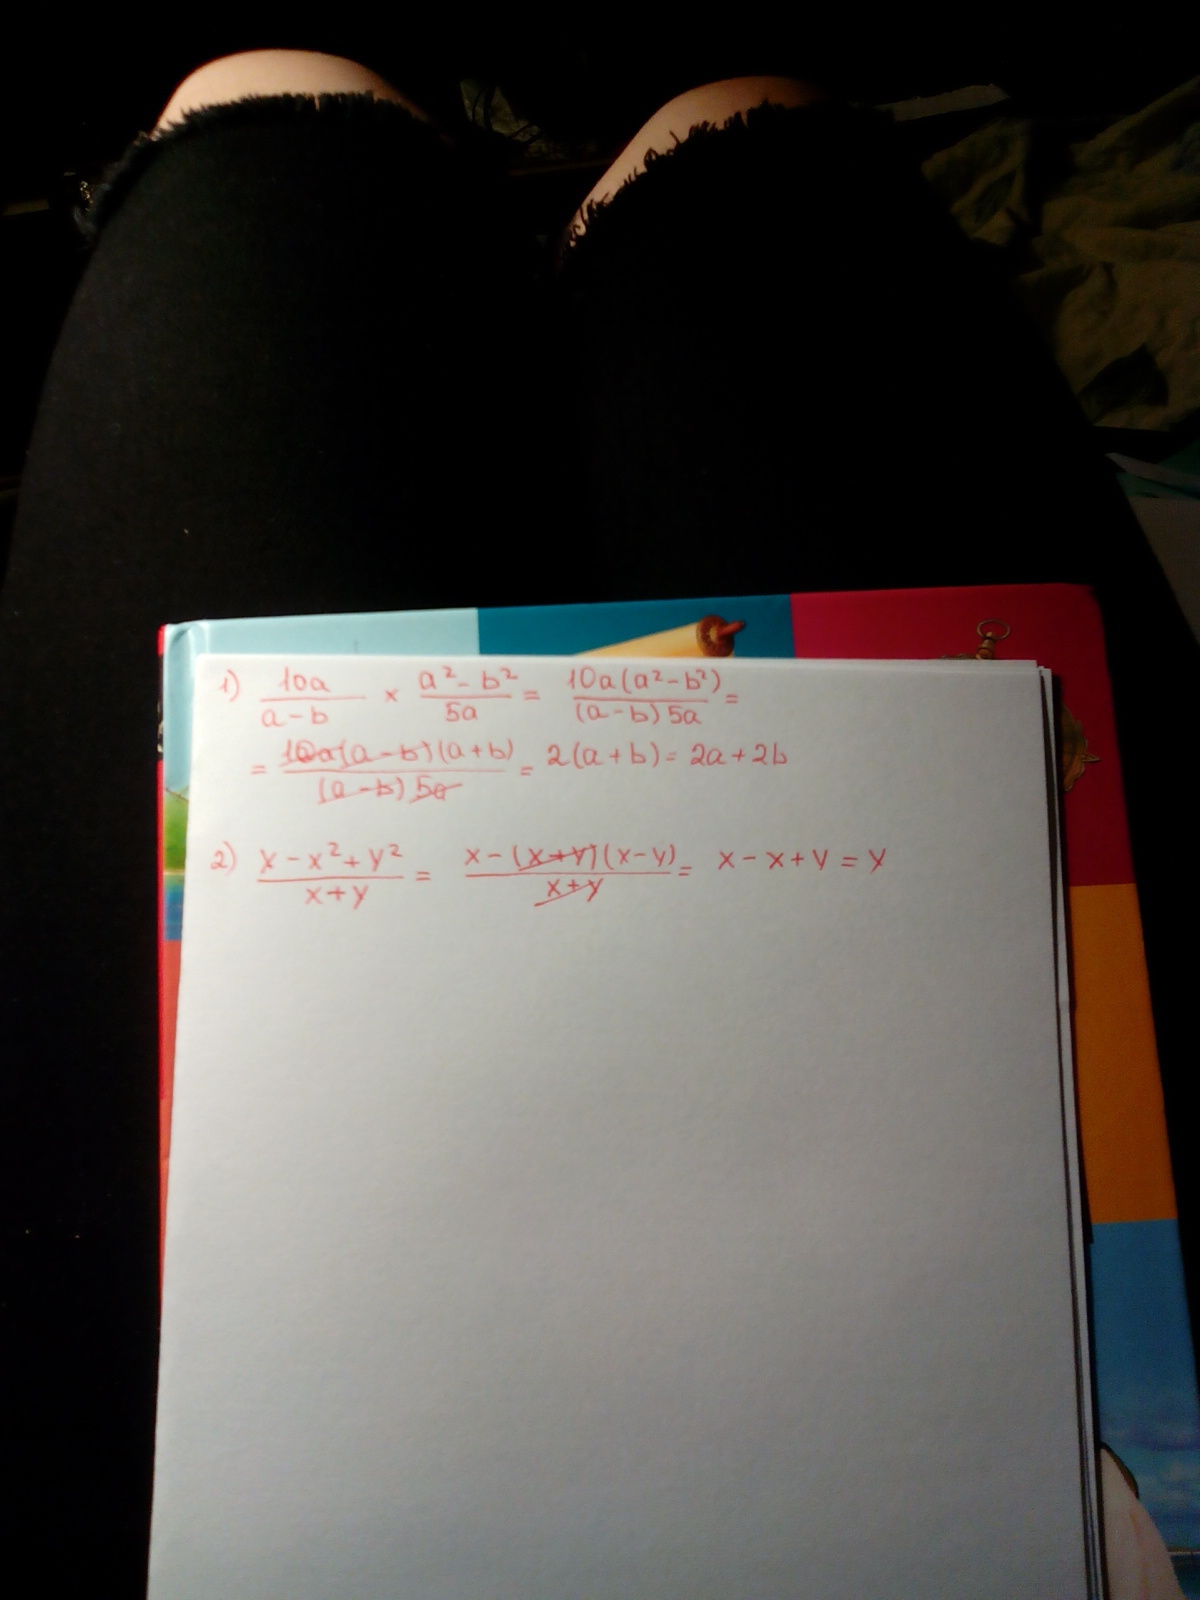 1) 10a/(a-b) × (a²-b²)/5a = 10a(a²-b²)/((a-b)5a) =
= 10a(a-b)(a+b)/((a-b)5a) = 2(a+b) = 2a+2b
2) (x-x²+y²)/(x+y) = (x-(x+y)(x-y))/(x+y) = x-x+y = y